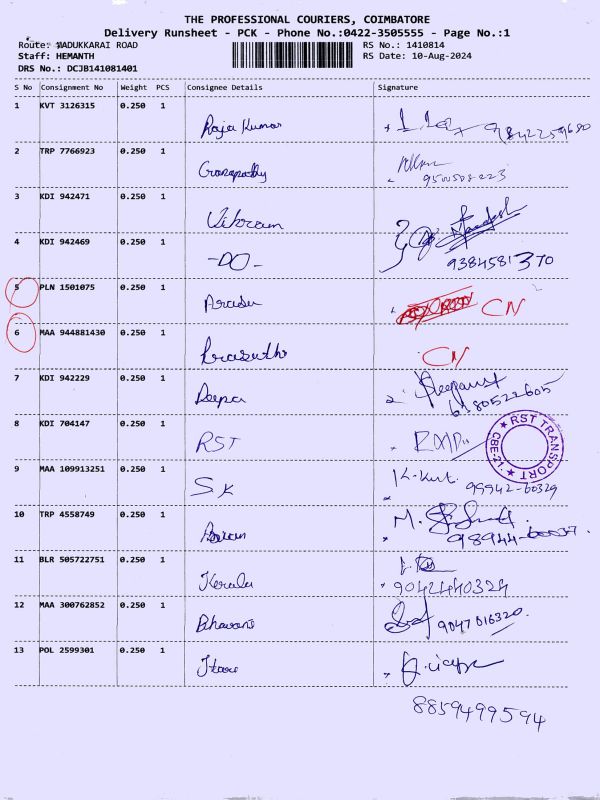 THE PROFESSIONAL COURIERS, COIMBATORE
Delivery Runsheet - PCK - Phone No.:0422-3505555 - Page No.:1
Route: MADUKKARAI ROAD RS No.: 1410814
Staff: HEMANTH RS Date: 10-Aug-2024
DRS No.: DCJB141081401
S No Consignment No Weight PCS Consignee Details Signature
1 KVT 3126315 0.250 1
Raja Kumar
2 TRP 7766923 0.250 1
Ganapathy
3 KDI 942471 0.250 1
Vikram
4 KDI 942469 0.250 1
-DO- 9384581370
5 PLN 1501075 0.250 1
CN
6 MAA 944881430 0.250 1
CN
7 KDI 942229 0.250 1
Deepa
8 KDI 704147 0.250 1
RST
RST TRANSPORT CBE-21
9 MAA 109913251 0.250 1
SK 99942-60329
10 TRP 4558749 0.250 1
11 BLR 505722751 0.250 1
Kerala
12 MAA 300762852 0.250 1
Bhavani 9047016320
13 POL 2599301 0.250 1
8859499594